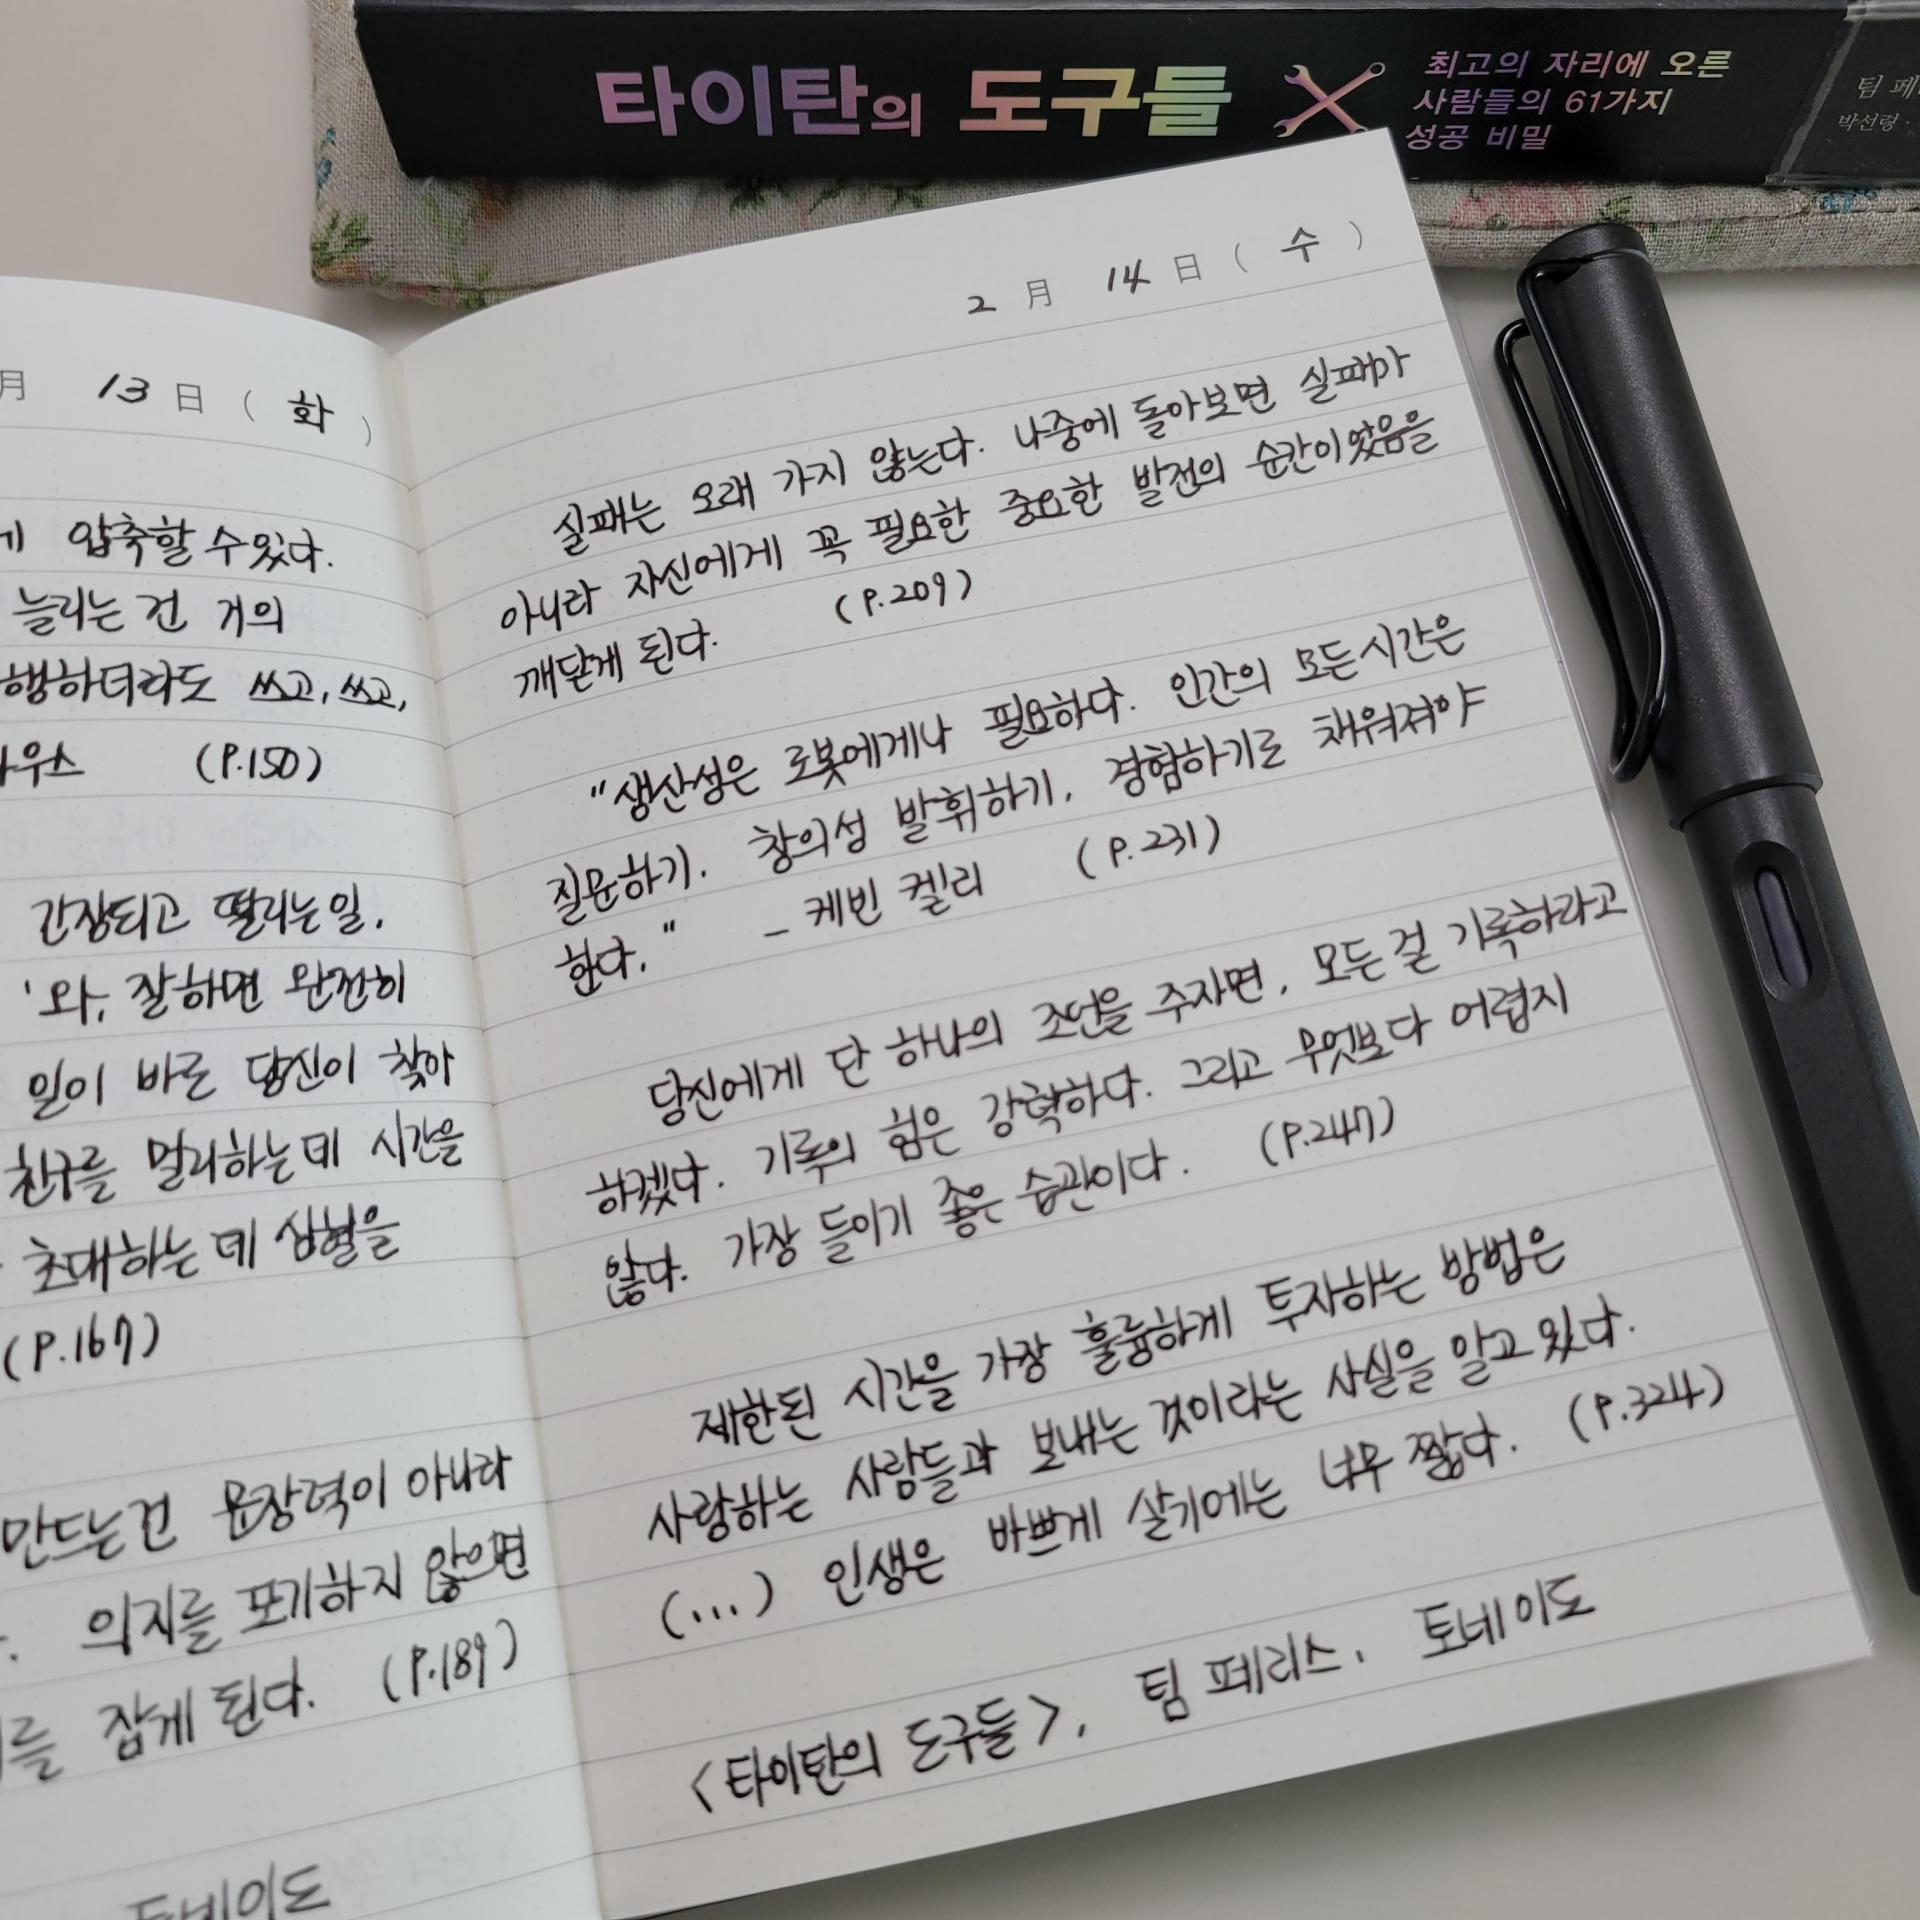 타이탄의 도구들
최고의 자리에 오른
사람들의 61가지
성공 비밀
팀 페
박선령 ·
月 13 日 ( 화 )
게 압축할 수 있다.
늘리는 건 거의
행하더라도 쓰고, 쓰고,
하우스 (P.150)
긴장되고 떨리는 일.
'와, 잘하면 완전히
일이 바로 당신이 찾아
친구를 멀리하는 데 시간을
초대하는 데 심혈을
(P.167)
만드는 건 문장력이 아니라
의지를 포기하지 않으면
를 잡게 된다. (P.189)
토네이도
2 月 14 日 ( 수 )
실패는 오래 가지 않는다. 나중에 돌아보면 실패가
아니라 자신에게 꼭 필요한 중요한 발전의 순간이었음을
깨닫게 된다. (P.209)
"생산성은 로봇에게나 필요하다. 인간의 모든 시간은
질문하기, 창의성 발휘하기, 경험하기로 채워져야
한다." - 케빈 켈리 (P.231)
당신에게 단 하나의 조언을 주자면, 모든 걸 기록하라고
하겠다. 기록의 힘은 강력하다. 그리고 무엇보다 어렵지
않다. 가장 들이기 좋은 습관이다. (P.247)
제한된 시간을 가장 훌륭하게 투자하는 방법은
사랑하는 사람들과 보내는 것이라는 사실을 알고 있다.
(...) 인생은 바쁘게 살기에는 너무 짧다. (P.324)
<타이탄의 도구들>, 팀 페리스, 토네이도